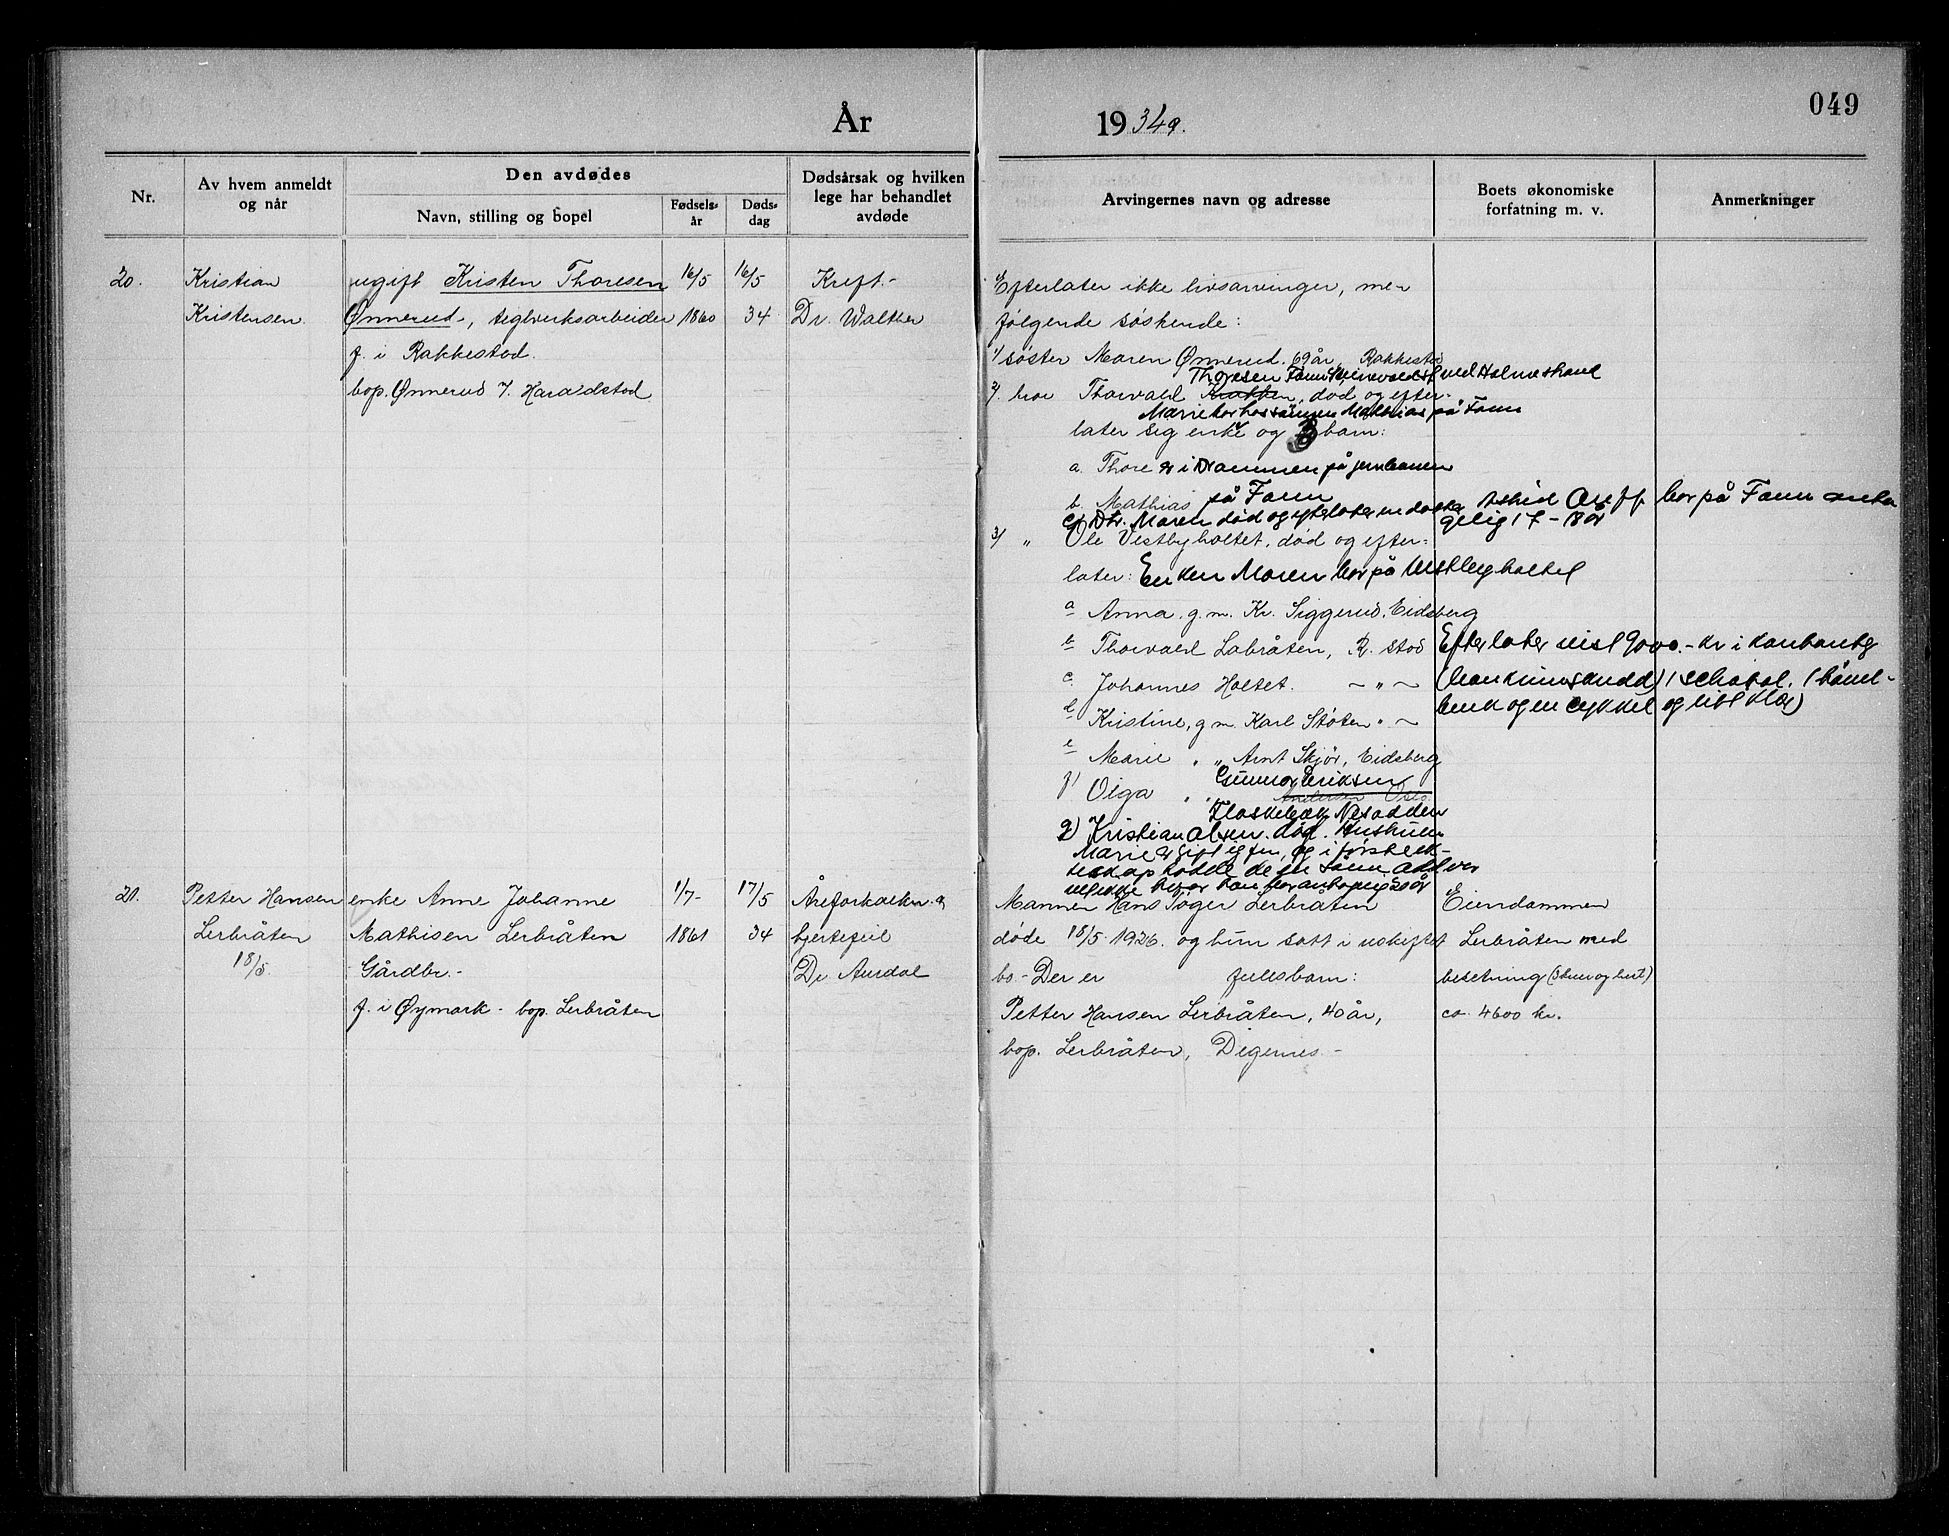 049
År 1934.
Nr.
Av hvem anmeldt og når
Den avdødes
Navn, stilling og bopel
Fødsels-år
Døds-dag
Dødsårsak og hvilken lege har behandlet avdøde
Arvingernes navn og adresse
Boets økonomiske forfatning m. v.
Anmerkninger
20.
Kristian
Kristensen.
ugift Kristen Thoresen
Ønnerud, teglverksarbeider
f. i Rakkestad.
bop. Ønnerud i Haraldstad
16/5
1860
16/5
34
Kreft.-
Dr. Walther
Efterlater ikke livsarvinger, men
følgende søskende:
1/ søster Maren Ønnerud. 69 år, Rakkestad
Thoresen Fann ved Holmestrand
2/ bror Thorvald, død og efter-
Marie bor hos sønnen Mathias på Fann
later sig enke og 3 barn:
a. Thore er i Drammen på jernbanen
b. Mathias på Fann
c) Dtr. Maren død og efterlater en datter bor på Fann anta
gelig 17-18 år
3/ " Ole Vestbyholtet, død og efter-
later: Enken Maren bor på Vestbyholtet
a Anna. g. m. Kr. Siggerud, Eidsberg
b Thorvald Labråten, R. stad
c. Johannes Holtet. — " —
d Kristine, g. m. Karl Støten " —
e Marie " " Arnt Skjør, Eidsberg
f/ Olga " " Gunnar Eriksen
Andersen Oslo
Flaskebæk Nesodden
g) Kristian Olsen. død.
Marie er gift igjen, og i første ek-
teskap hadde de en sønn
Efterlater visst 9000.- kr i kontanter
1 schatol. (høvel-
benk og en cykkel og litt klær)
21.
Petter Hansen
Lerbråten
18/5.
enke Anne Johanne
Mathisen Lerbråten
Gårdbr.-
f. i Øymark - bop. Lerbråten
1/7-
1861
17/5
34
Åreforkalkn. og
hjertefeil
Dr. Aurdal
Mannen Hans Tøger Lerbråten
døde 18/5 1926. og hun satt i uskiftet
bo.- Der er fullsbarn:
Petter Hansen Lerbråten, 40 år,
bop. Lerbråten, Degernes -
Eiendommen
Lerbråten med
besetning (3 kuer og hest)
ca. 4600 kr.